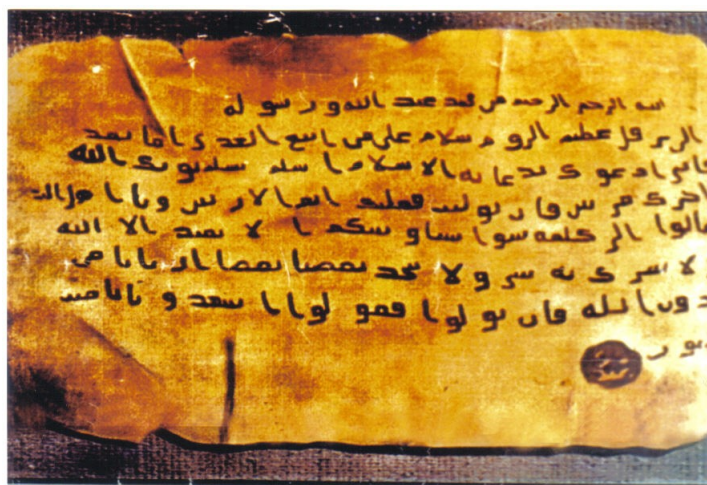 الله الرحمن الرحيم من محمد عبد الله ورسوله
الى هرقل عظيم الروم سلام على من اتبع الهدى اما بعد
فانى ادعوك بدعاية الاسلام اسلم تسلم يوتك الله
اجرك مرتين فان توليت فعليك اثم الاريسين ويا اهل
تعالوا الى كلمة سوا بيننا وبينكم ا لا نعبد الا الله
ولا نشرك به شى ولا يتخذ بعضنا بعضا اربابا من
دون الله فان تولوا فقولوا اشهدوا بانا مسلم
ون